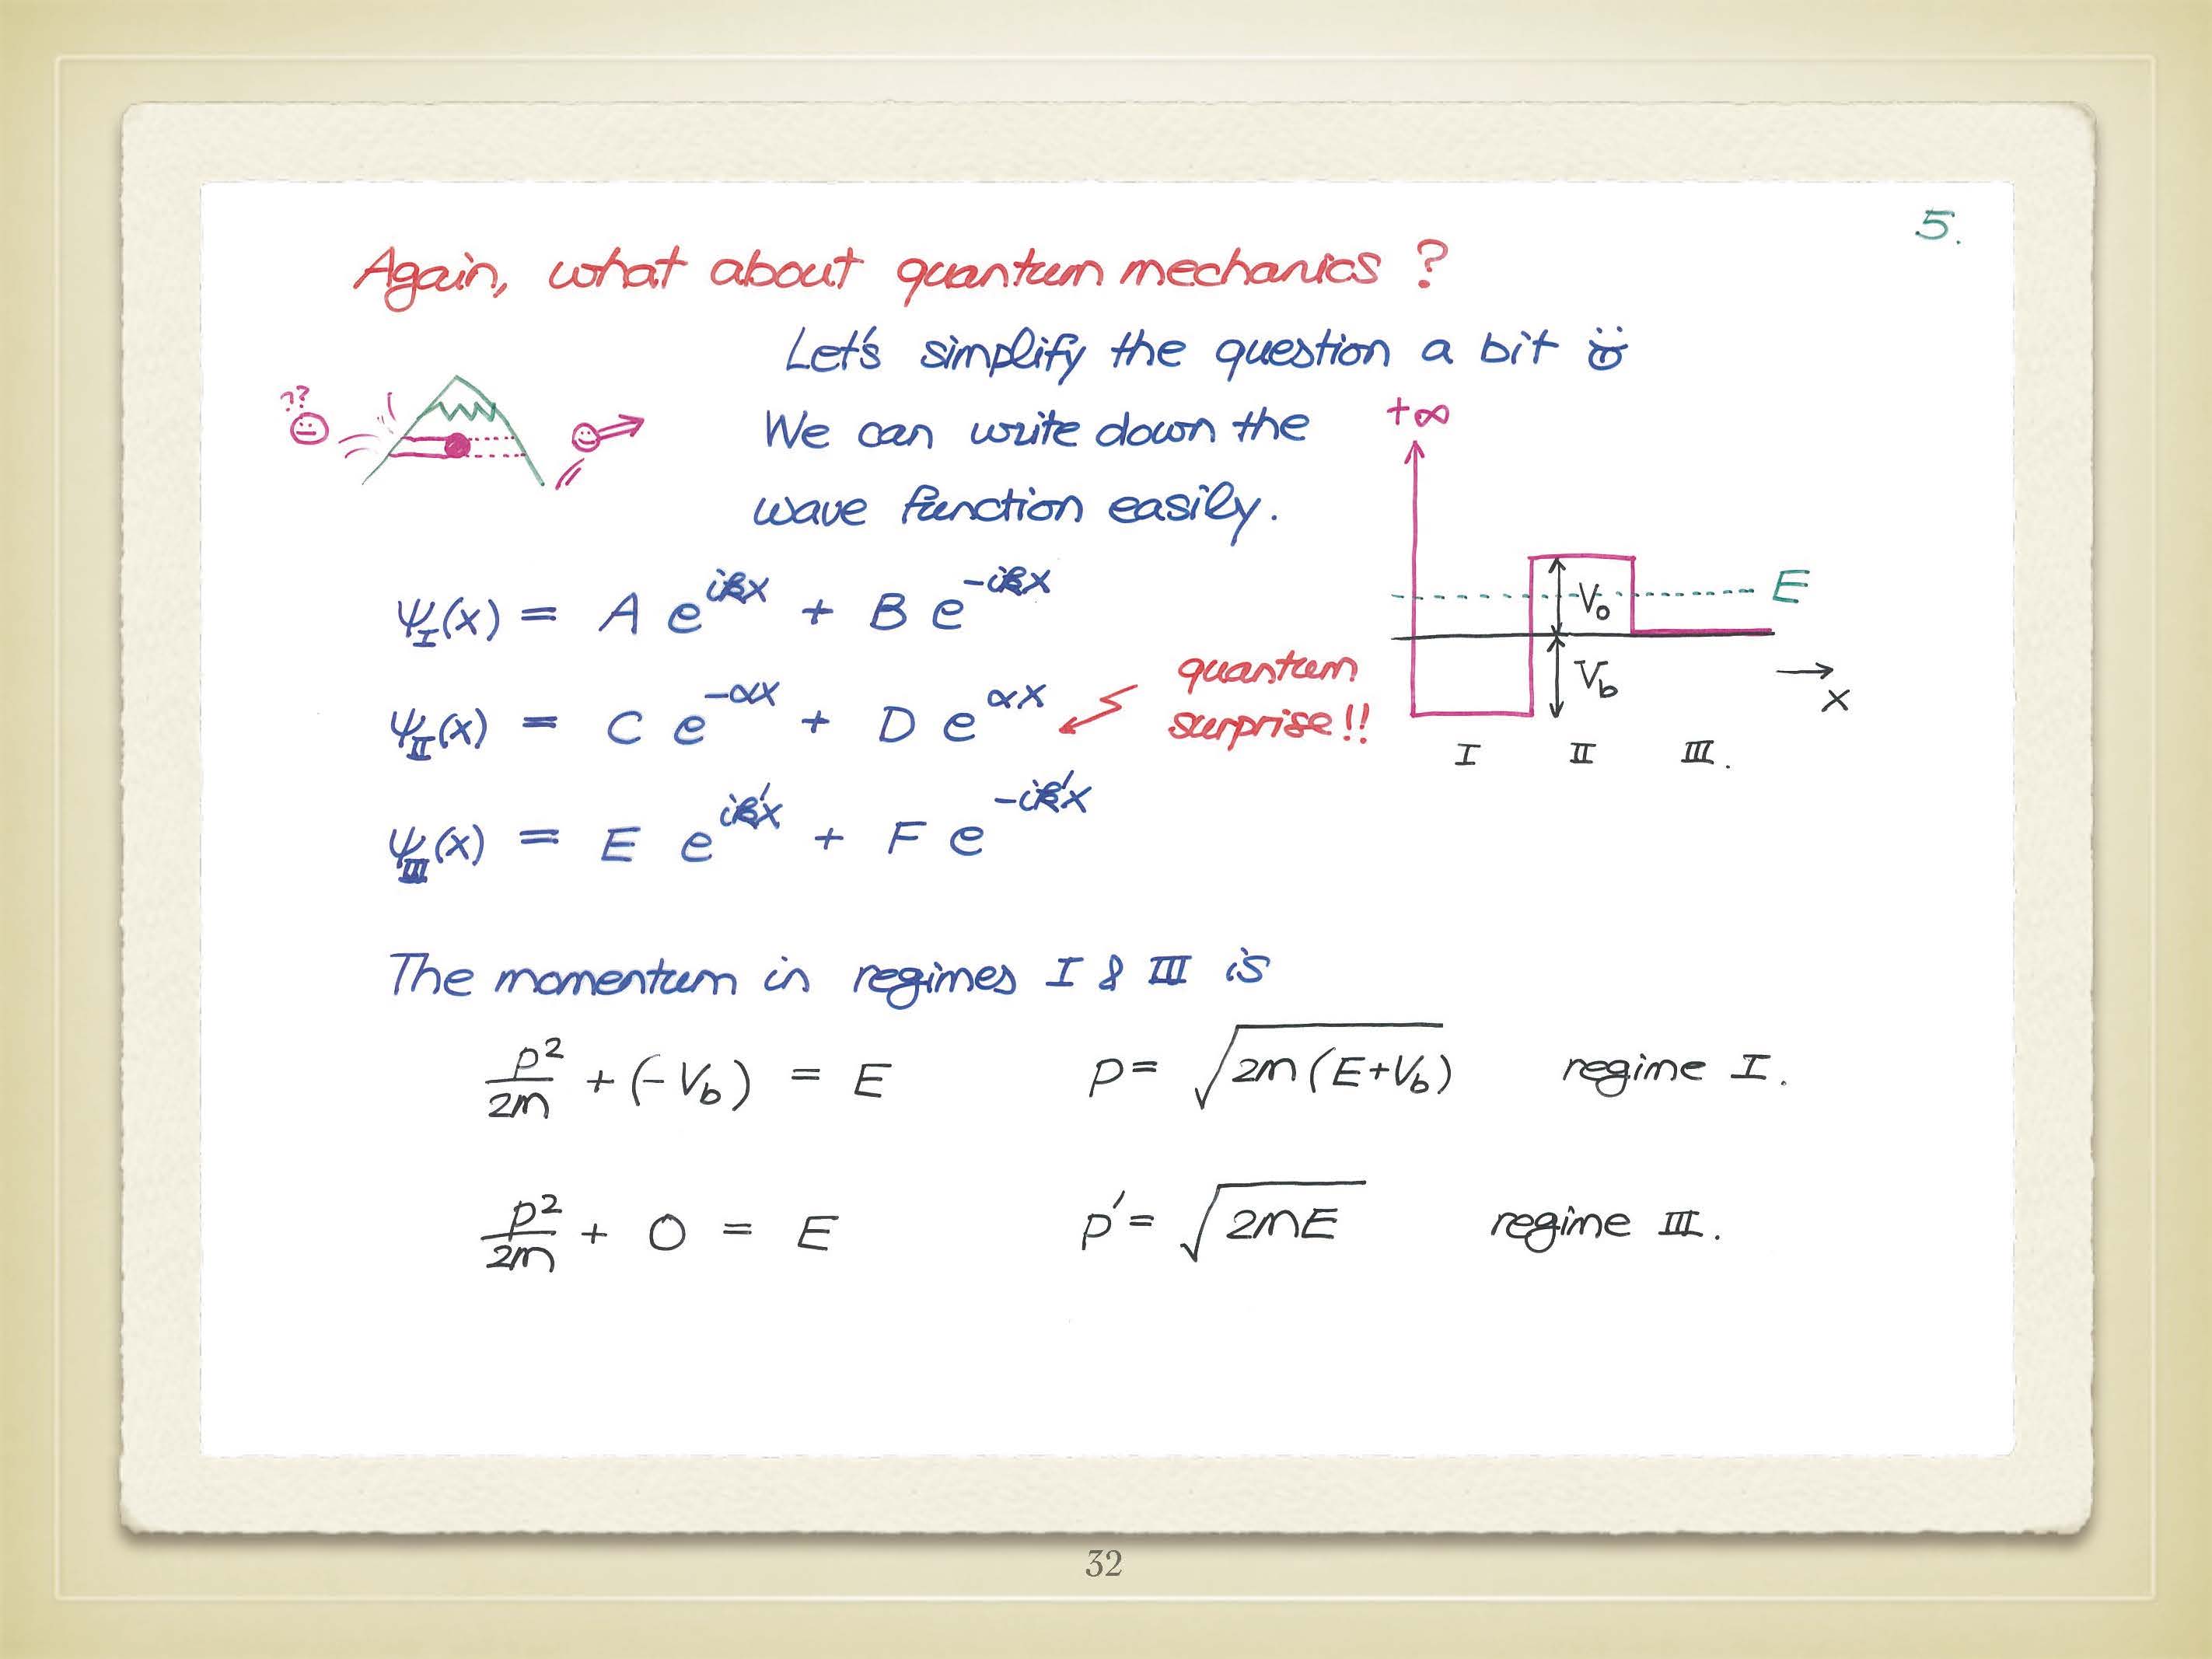 5.
Again, what about quantum mechanics ?
Let's simplify the question a bit
??
We can write down the
wave function easily.
+∞
E
V₀
V_b
x
I II III.
ψ_I(x) = A e^{ikx} + B e^{-ikx}
ψ_II(x) = C e^{-αx} + D e^{αx}
quantum
surprise!!
ψ_III(x) = E e^{ik'x} + F e^{-ik'x}
The momentum in regimes I & III is
p²/2m + (-V_b) = E p = √2m(E+V_b) regime I.
p²/2m + 0 = E p' = √2mE regime III.
32